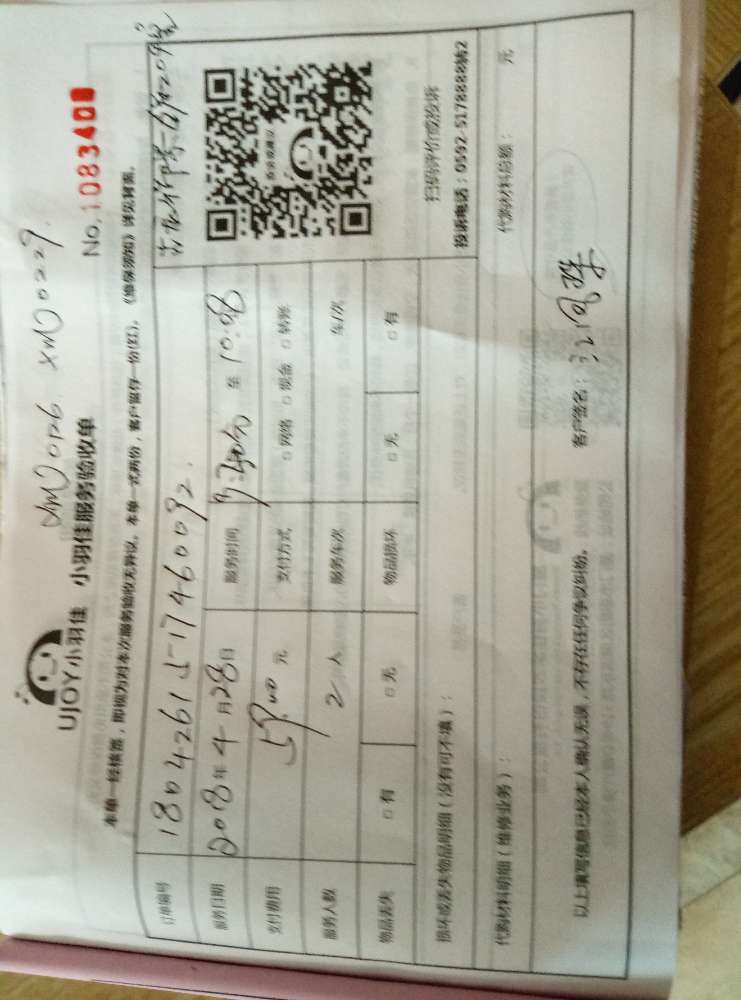 XM0126. XM0229.
UJOY小羽佳 小羽佳服务验收单
No.1083408
本单一经核签，即视为对本次服务验收无异议。本单一式两份，客户留存一份(红)。《维保须知》详见背面。
订单编号 1804261517460092.
服务日期 2018年4月28日 服务时间 至10:08
支付费用 元 支付方式 □网络 □现金 □转账
服务人数 2人 服务车次 车/次
物品丢失 □有 □无 物品损坏 □无 □有
扫码评价或投诉
投诉电话：0592-5178888转2
损坏或丢失物品明细（没有可不填）：
代购材料明细（维修业务）： 代购材料总额： 元
以上填写信息已经本人确认无误，不存在任何争议纠纷。 客户签名：